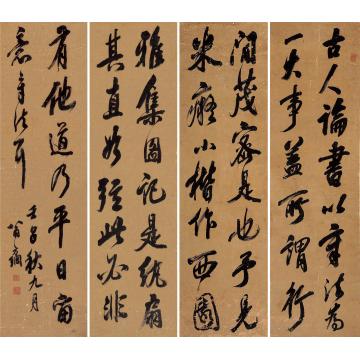 古人論書以章法爲
一大事蓋所謂行
間茂密是也予見
米癡小楷作西園
雅集圖記是紈扇
其直如弦此必非
有他道乃平日留
意章法耳
壬呂秋九月